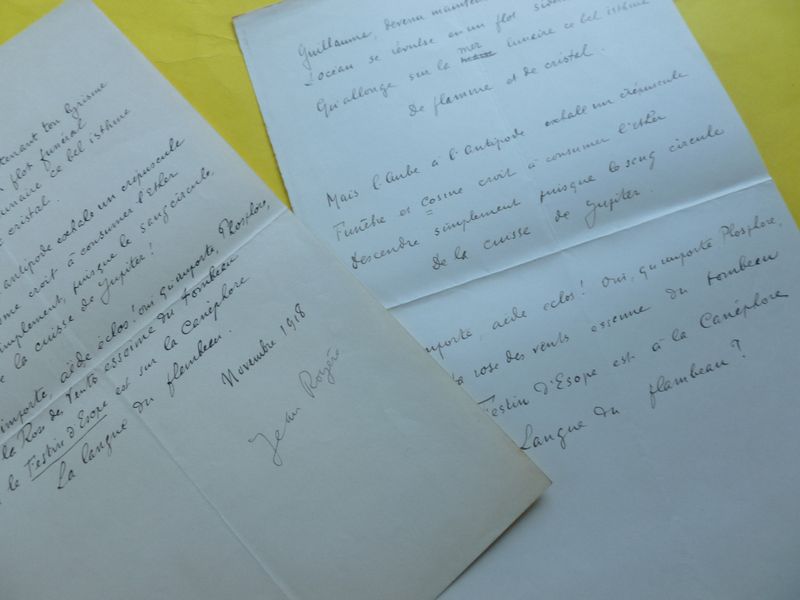 tenant ton Grisme
flot funéral
lunaire ce bel isthme
cristal.
antipode exhale un crépuscule
croit à consumer l'Ether
implement, puisque le sang circule
la cuisse de Jupiter!
importe, aède éclos! oui qu'importe, Phosphore,
la Rose des Vents essaime du tombeau
le Festin d'Esope est sur la Canéphore
La langue du flambeau.
Novembre 1918
Jean Royère
Guillaume, devenu mainten
L'océan se révulse en un flot
Qu'allonge sur la mer lunaire ce bel isthme
De flamme et de cristal.
Mais l'Aube à l'antipode exhale un crépuscule
Funèbre et croit à consumer l'Ether
Descendre simplement puisque le sang circule
De la cuisse de Jupiter.
importe, aède éclos! Oui, qu'importe Phosphore,
la rose des vents essaime du tombeau
Festin d'Esope est à la Canéphore
Langue du flambeau?